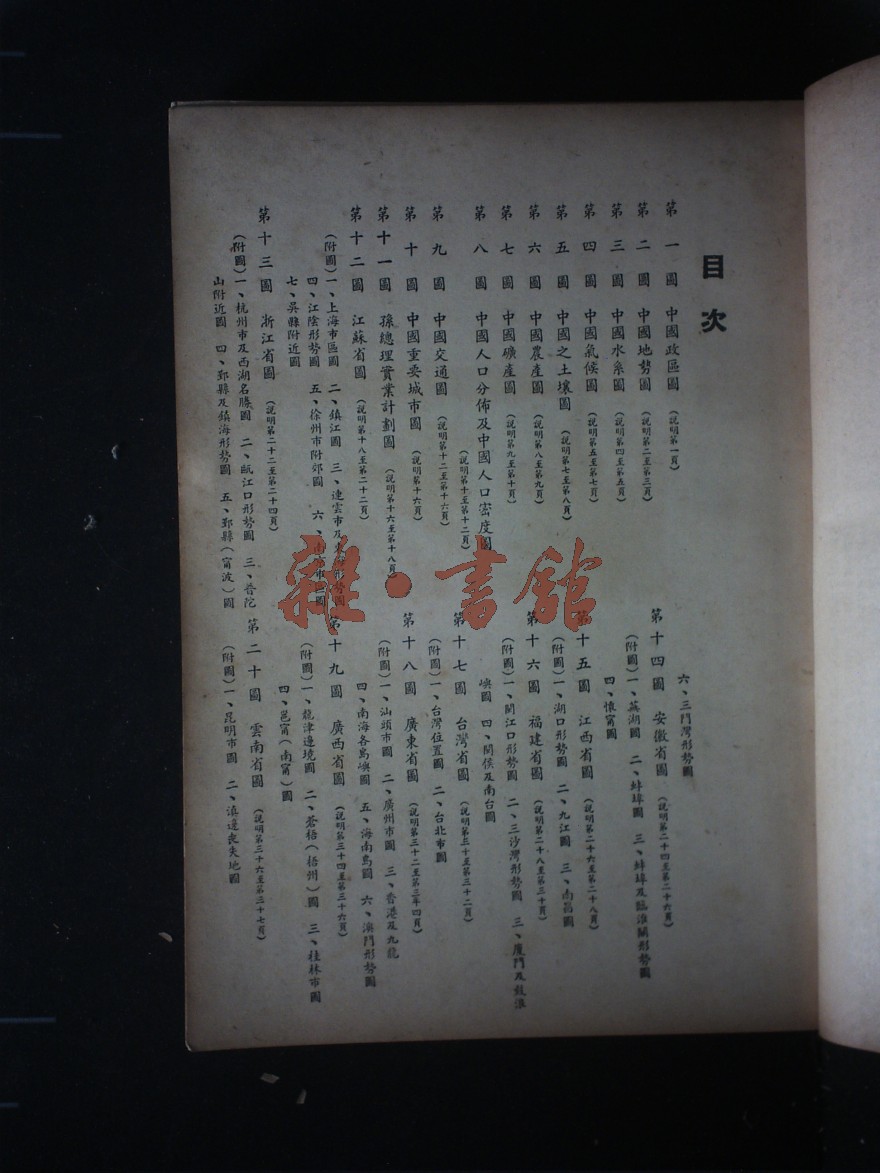 目次
第一圖 中國政區圖 （說明第一頁）
第二圖 中國地勢圖 （說明第二至第三頁）
第三圖 中國水系圖 （說明第四至第五頁）
第四圖 中國氣候圖 （說明第五至第七頁）
第五圖 中國之土壤圖 （說明第七至第八頁）
第六圖 中國農產圖 （說明第八至第九頁）
第七圖 中國礦產圖 （說明第九至第十頁）
第八圖 中國人口分佈及中國人口密度圖
（說明第十至第十二頁）
第九圖 中國交通圖 （說明第十二至第十六頁）
第十圖 中國重要城市圖 （說明第十六頁）
第十一圖 孫總理實業計劃圖 （說明第十六至第十八頁）
第十二圖 江蘇省圖 （說明第十八至第二十二頁）
（附圖）一、上海市區圖 二、鎮江圖 三、連雲市及東海形勢圖
四、江陰形勢圖 五、徐州市附郊圖 六、南京市區圖
七、吳縣附近圖
第十三圖 浙江省圖 （說明第二十二至第二十四頁）
（附圖）一、杭州市及西湖名勝圖 二、甌江口形勢圖 三、普陀
山附近圖 四、鄞縣及鎮海形勢圖 五、鄞縣（甯波）圖
六、三門灣形勢圖
第十四圖 安徽省圖 （說明第二十四至第二十六頁）
（附圖）一、蕪湖圖 二、蚌埠圖 三、蚌埠及臨淮關形勢圖
四、懷甯圖
第十五圖 江西省圖 （說明第二十六至第二十八頁）
（附圖）一、湖口形勢圖 二、九江圖 三、南昌圖
第十六圖 福建省圖 （說明第二十八至第三十頁）
（附圖）一、閩江口形勢圖 二、三沙灣形勢圖 三、廈門及鼓浪
嶼圖 四、閩侯及南台圖
第十七圖 台灣省圖 （說明第三十至第三十二頁）
（附圖）一、台灣位置圖 二、台北市圖
第十八圖 廣東省圖 （說明第三十二至第三十四頁）
（附圖）一、汕頭市圖 二、廣州市圖 三、香港及九龍
四、南海各島嶼圖 五、海南島圖 六、澳門形勢圖
第十九圖 廣西省圖 （說明第三十四至第三十六頁）
（附圖）一、龍津邊境圖 二、蒼梧（梧州）圖 三、桂林市圖
四、邕甯（南甯）圖
第二十圖 雲南省圖 （說明第三十六至第三十七頁）
（附圖）一、昆明市圖 二、滇邊喪失地圖
雜·書館